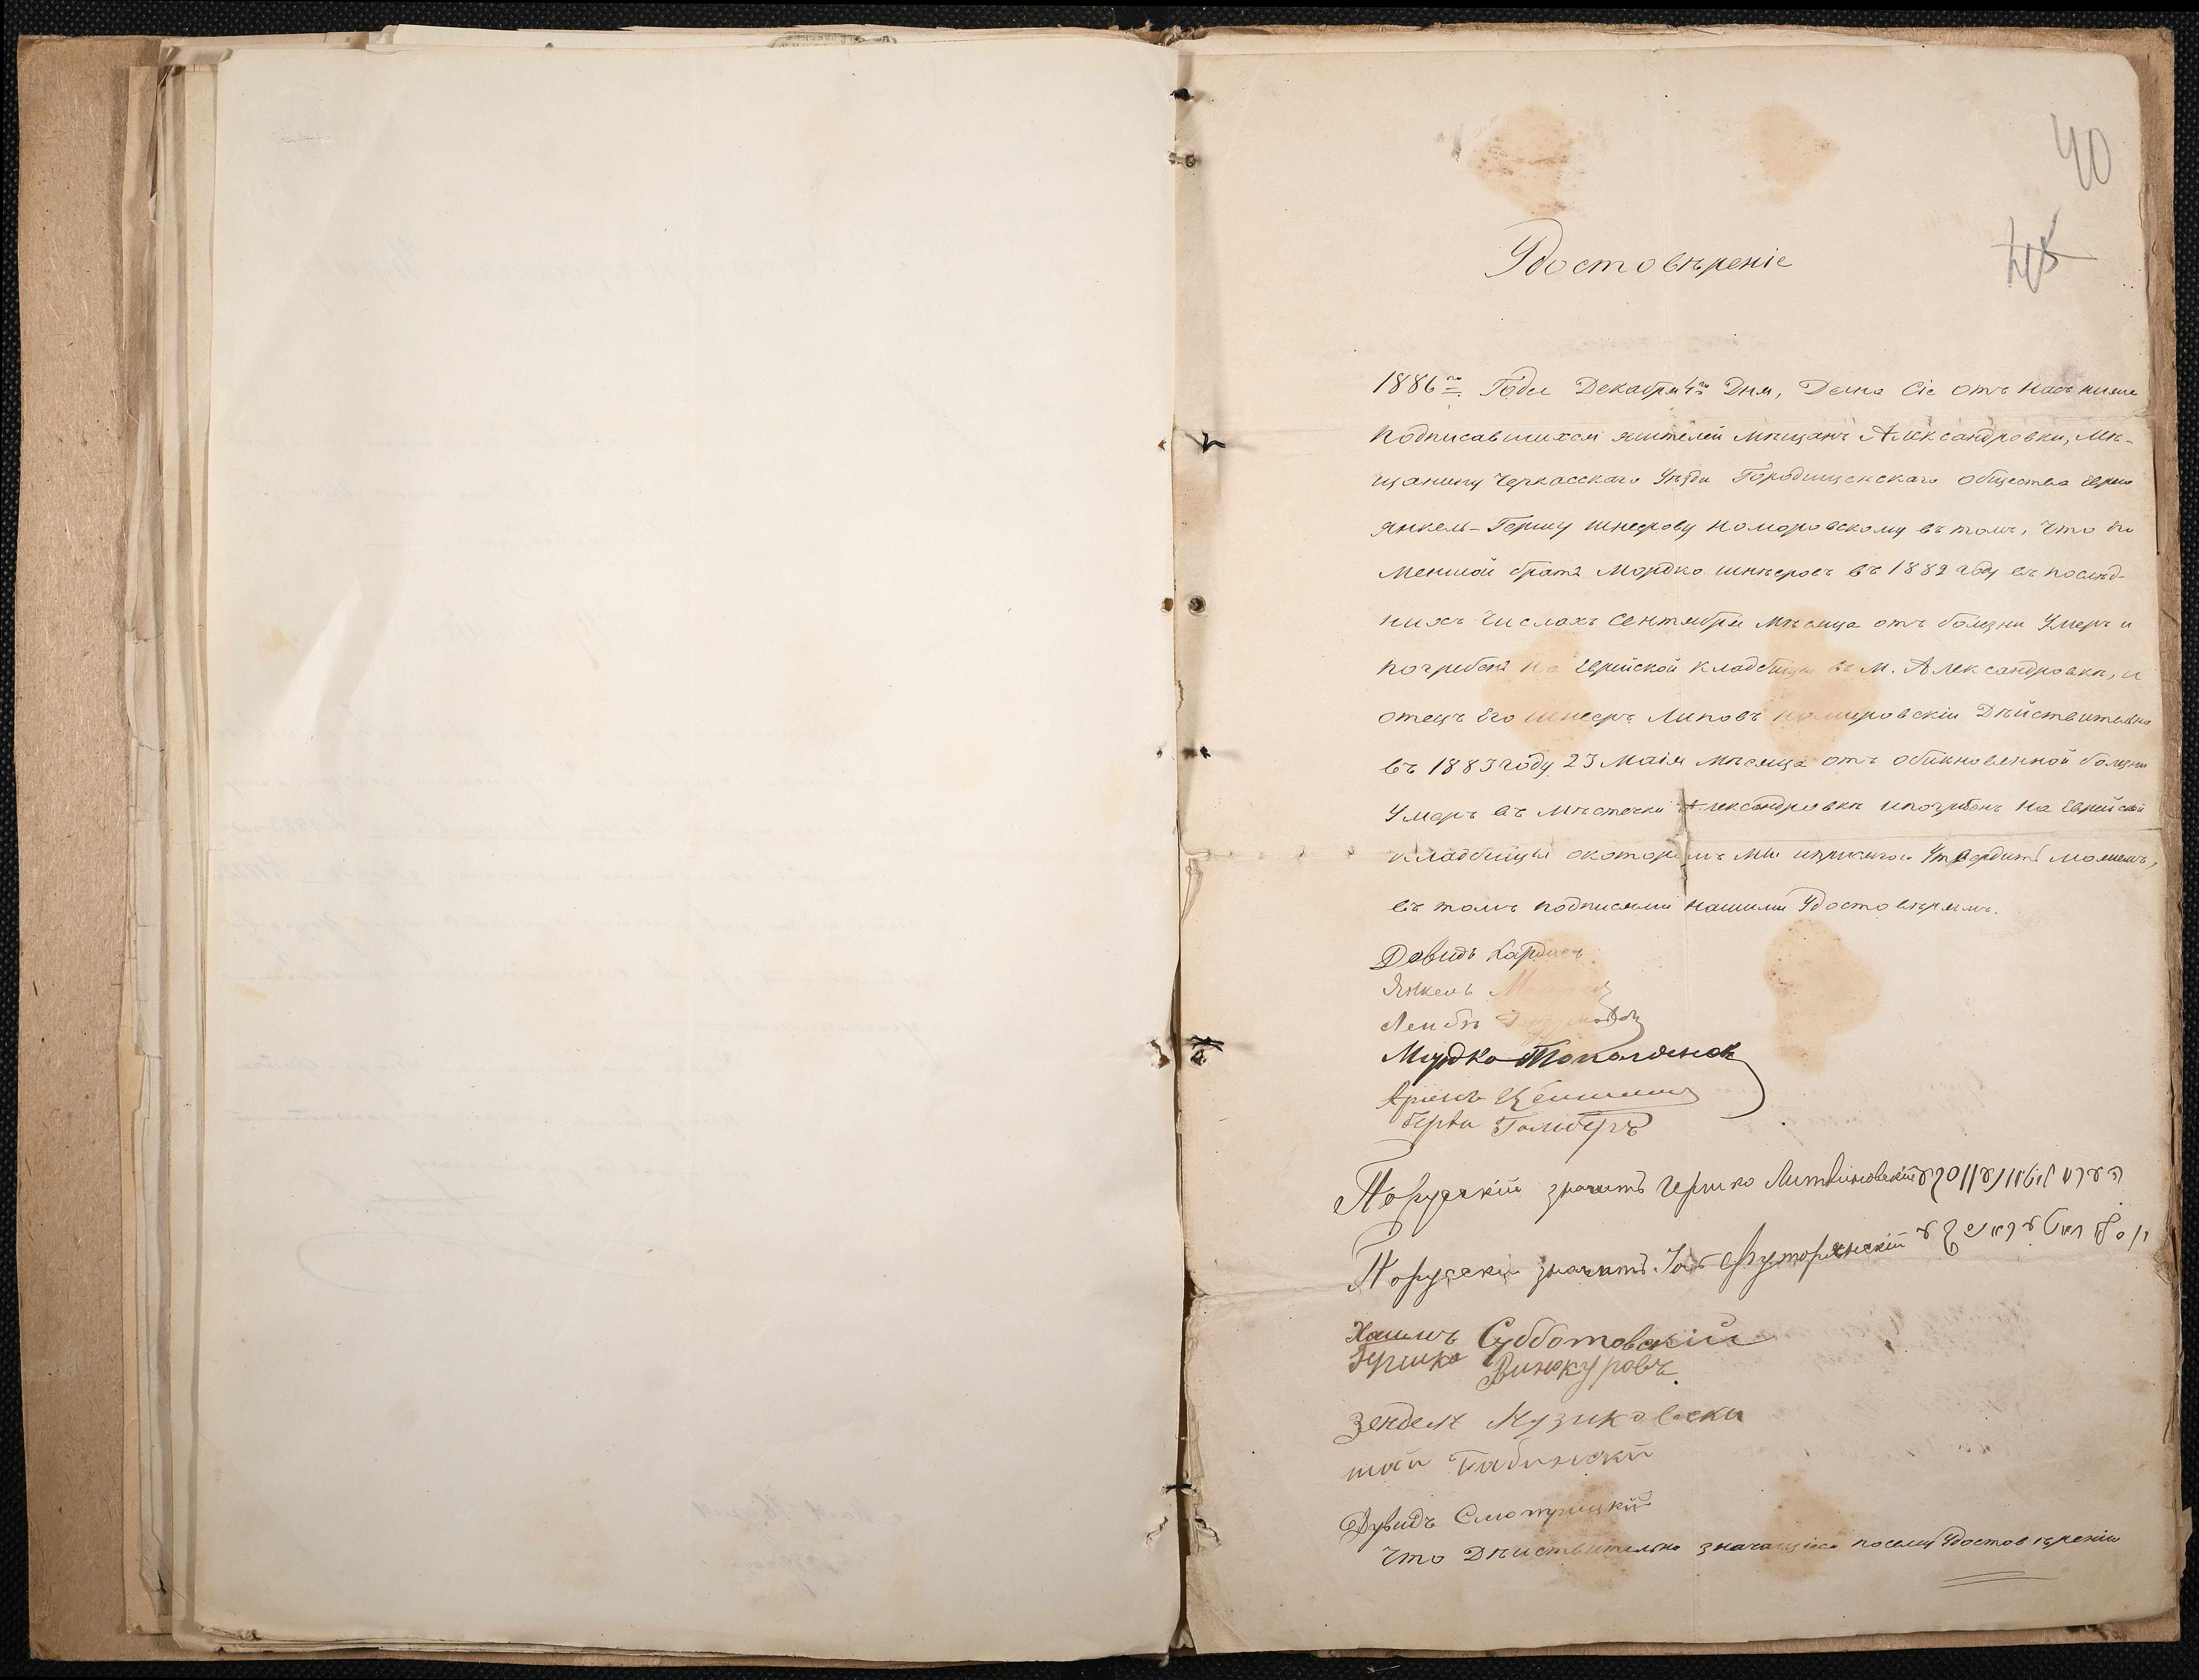 40
Удостовѣреніе
1886го Года Декабря 4го Дня, Дана Сіе отъ насъ ниже
подписавшихся жителей мѣщанъ Александровки, мѣ-
щанину Черкасскаго Уѣзда Городищенскаго общества Еврею
Янкель-Гершу Шнеерову Комаровскому въ томъ, что
меншой братъ Мордко Шнѣеровъ въ 1882 году въ послѣд-
нихъ числахъ Сентября мѣсяца отъ болѣзни Умеръ и
погребенъ на Еврейской кладбищи въ М. Александровкѣ, и
отецъ Его Шнееръ Липовъ Комаровскіи Дѣйствительно
въ 1883 году 23 Маія мѣсяца отъ обикновенной болѣзни
Умеръ въ мѣстечки Александровкѣ и погребенъ на Еврейской
кладбищи о которимъ мы Утвердить можемъ,
въ томъ подписями нашими Удостовѣряемъ.
Довидъ
Янкель
Лейба
Мордко
Берко
Порускій значитъ Гершко Литвиновскій
Порускій значитъ Хуторянскій
Хаимъ Субботовскій
Гершко Винокуровъ.
Зендель Музиковски
Дувидъ Смотрицкій
Что Дѣйствительно значащіеся посему Удостовѣренію